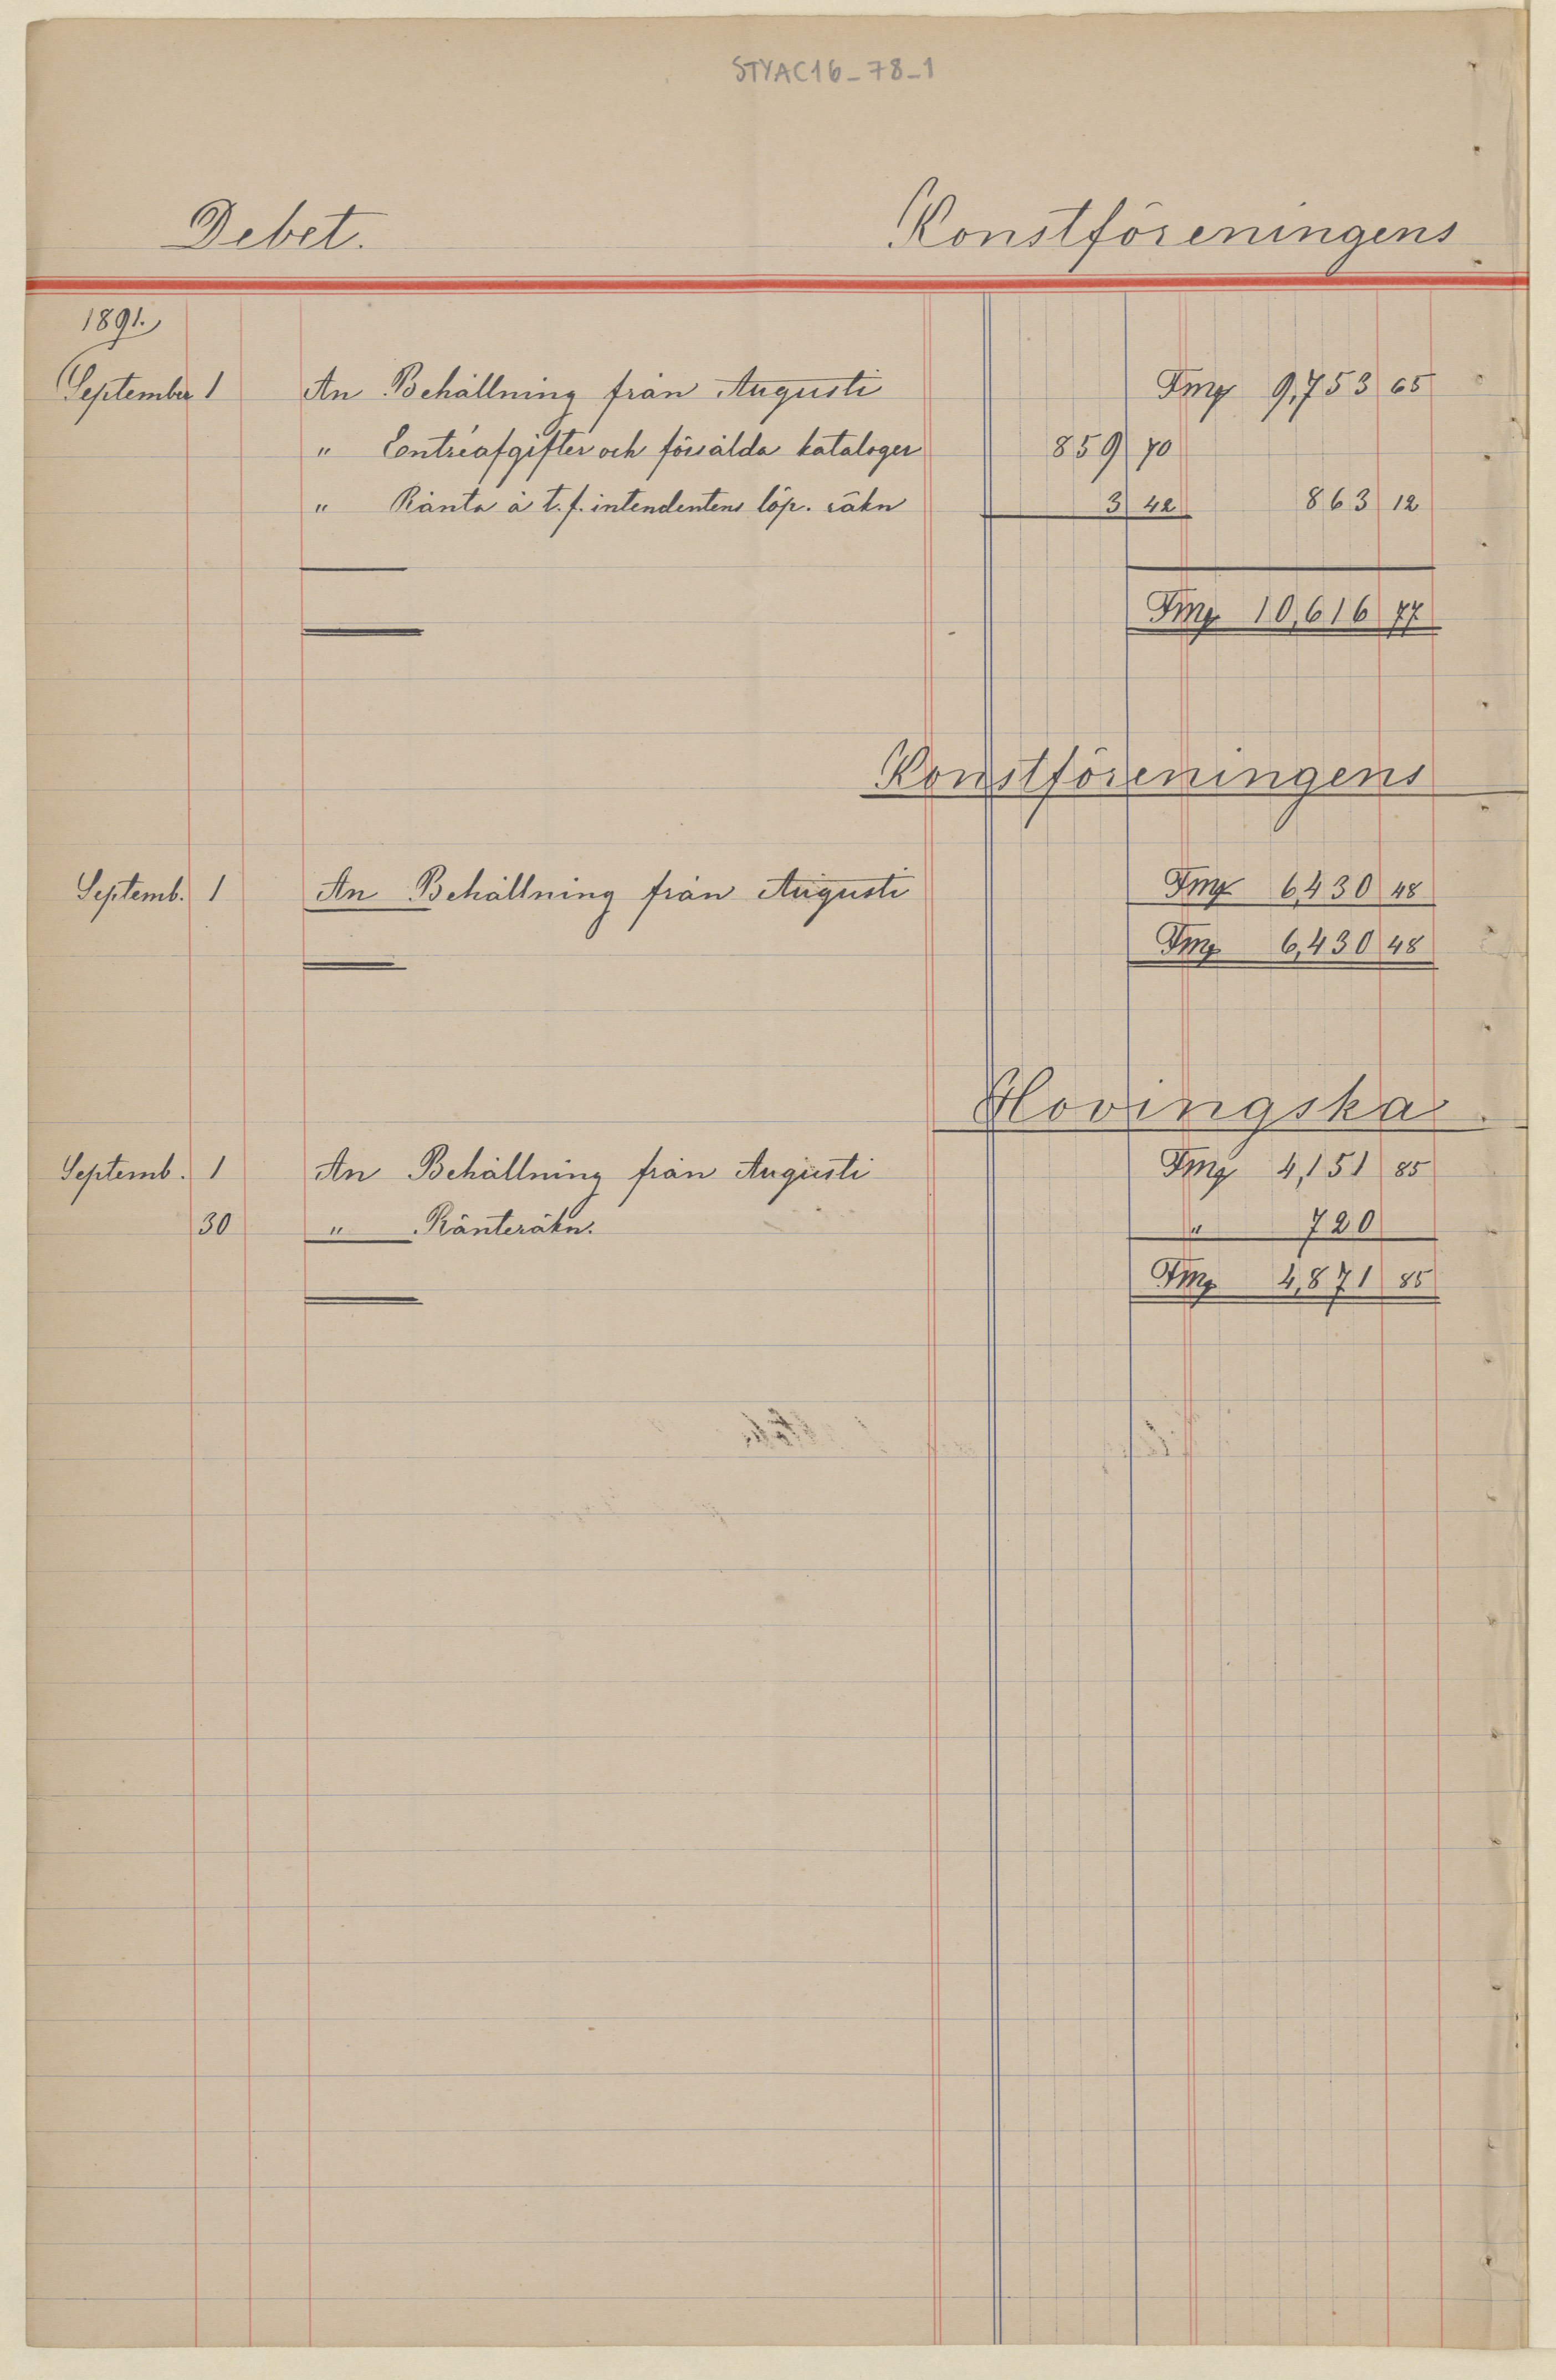 STYAC16-78-1
Debet. Konstföreningens
1891.
September 1 An Behållning från Augusti Fmg 9,753 65
" Entréafgifter och försålda kataloger 859 70
" Ränta å t. f. intendentens löp. räkn 3 42 863 12
Fmg 10,616 77
Konstföreningens
Septemb. 1 An Behållning från Augusti Fmg 6,430 48
Fmg 6,430 48
Hovingska
Septemb. 1 An Behållning från Augusti Fmg 4,151 85
30 " Ränteräkn. " 720
Fmg 4,871 85